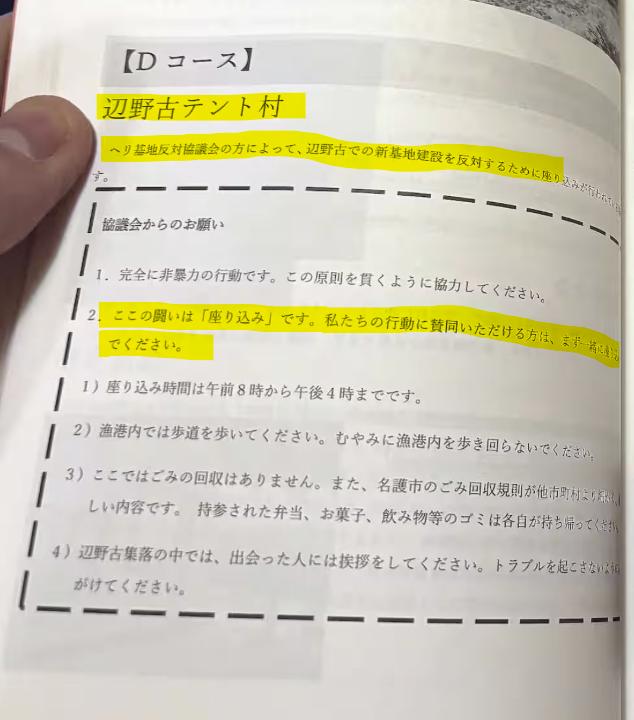 【D コース】
辺野古テント村
ヘリ基地反対協議会の方によって、辺野古での新基地建設を反対するために座り込みが行われてい
す。
協議会からのお願い
1．完全に非暴力の行動です。この原則を貫くように協力してください。
2．ここの闘いは「座り込み」です。私たちの行動に賛同いただける方は、まず一緒に座り込
でください。
1）座り込み時間は午前8時から午後4時までです。
2）漁港内では歩道を歩いてください。むやみに漁港内を歩き回らないでください。
3）ここではごみの回収はありません。また、名護市のごみ回収規則が他市町村より
しい内容です。 持参された弁当、お菓子、飲み物等のゴミは各自が持ち帰ってくださ
4）辺野古集落の中では、出会った人には挨拶をしてください。トラブルを起こさないよう
がけてください。